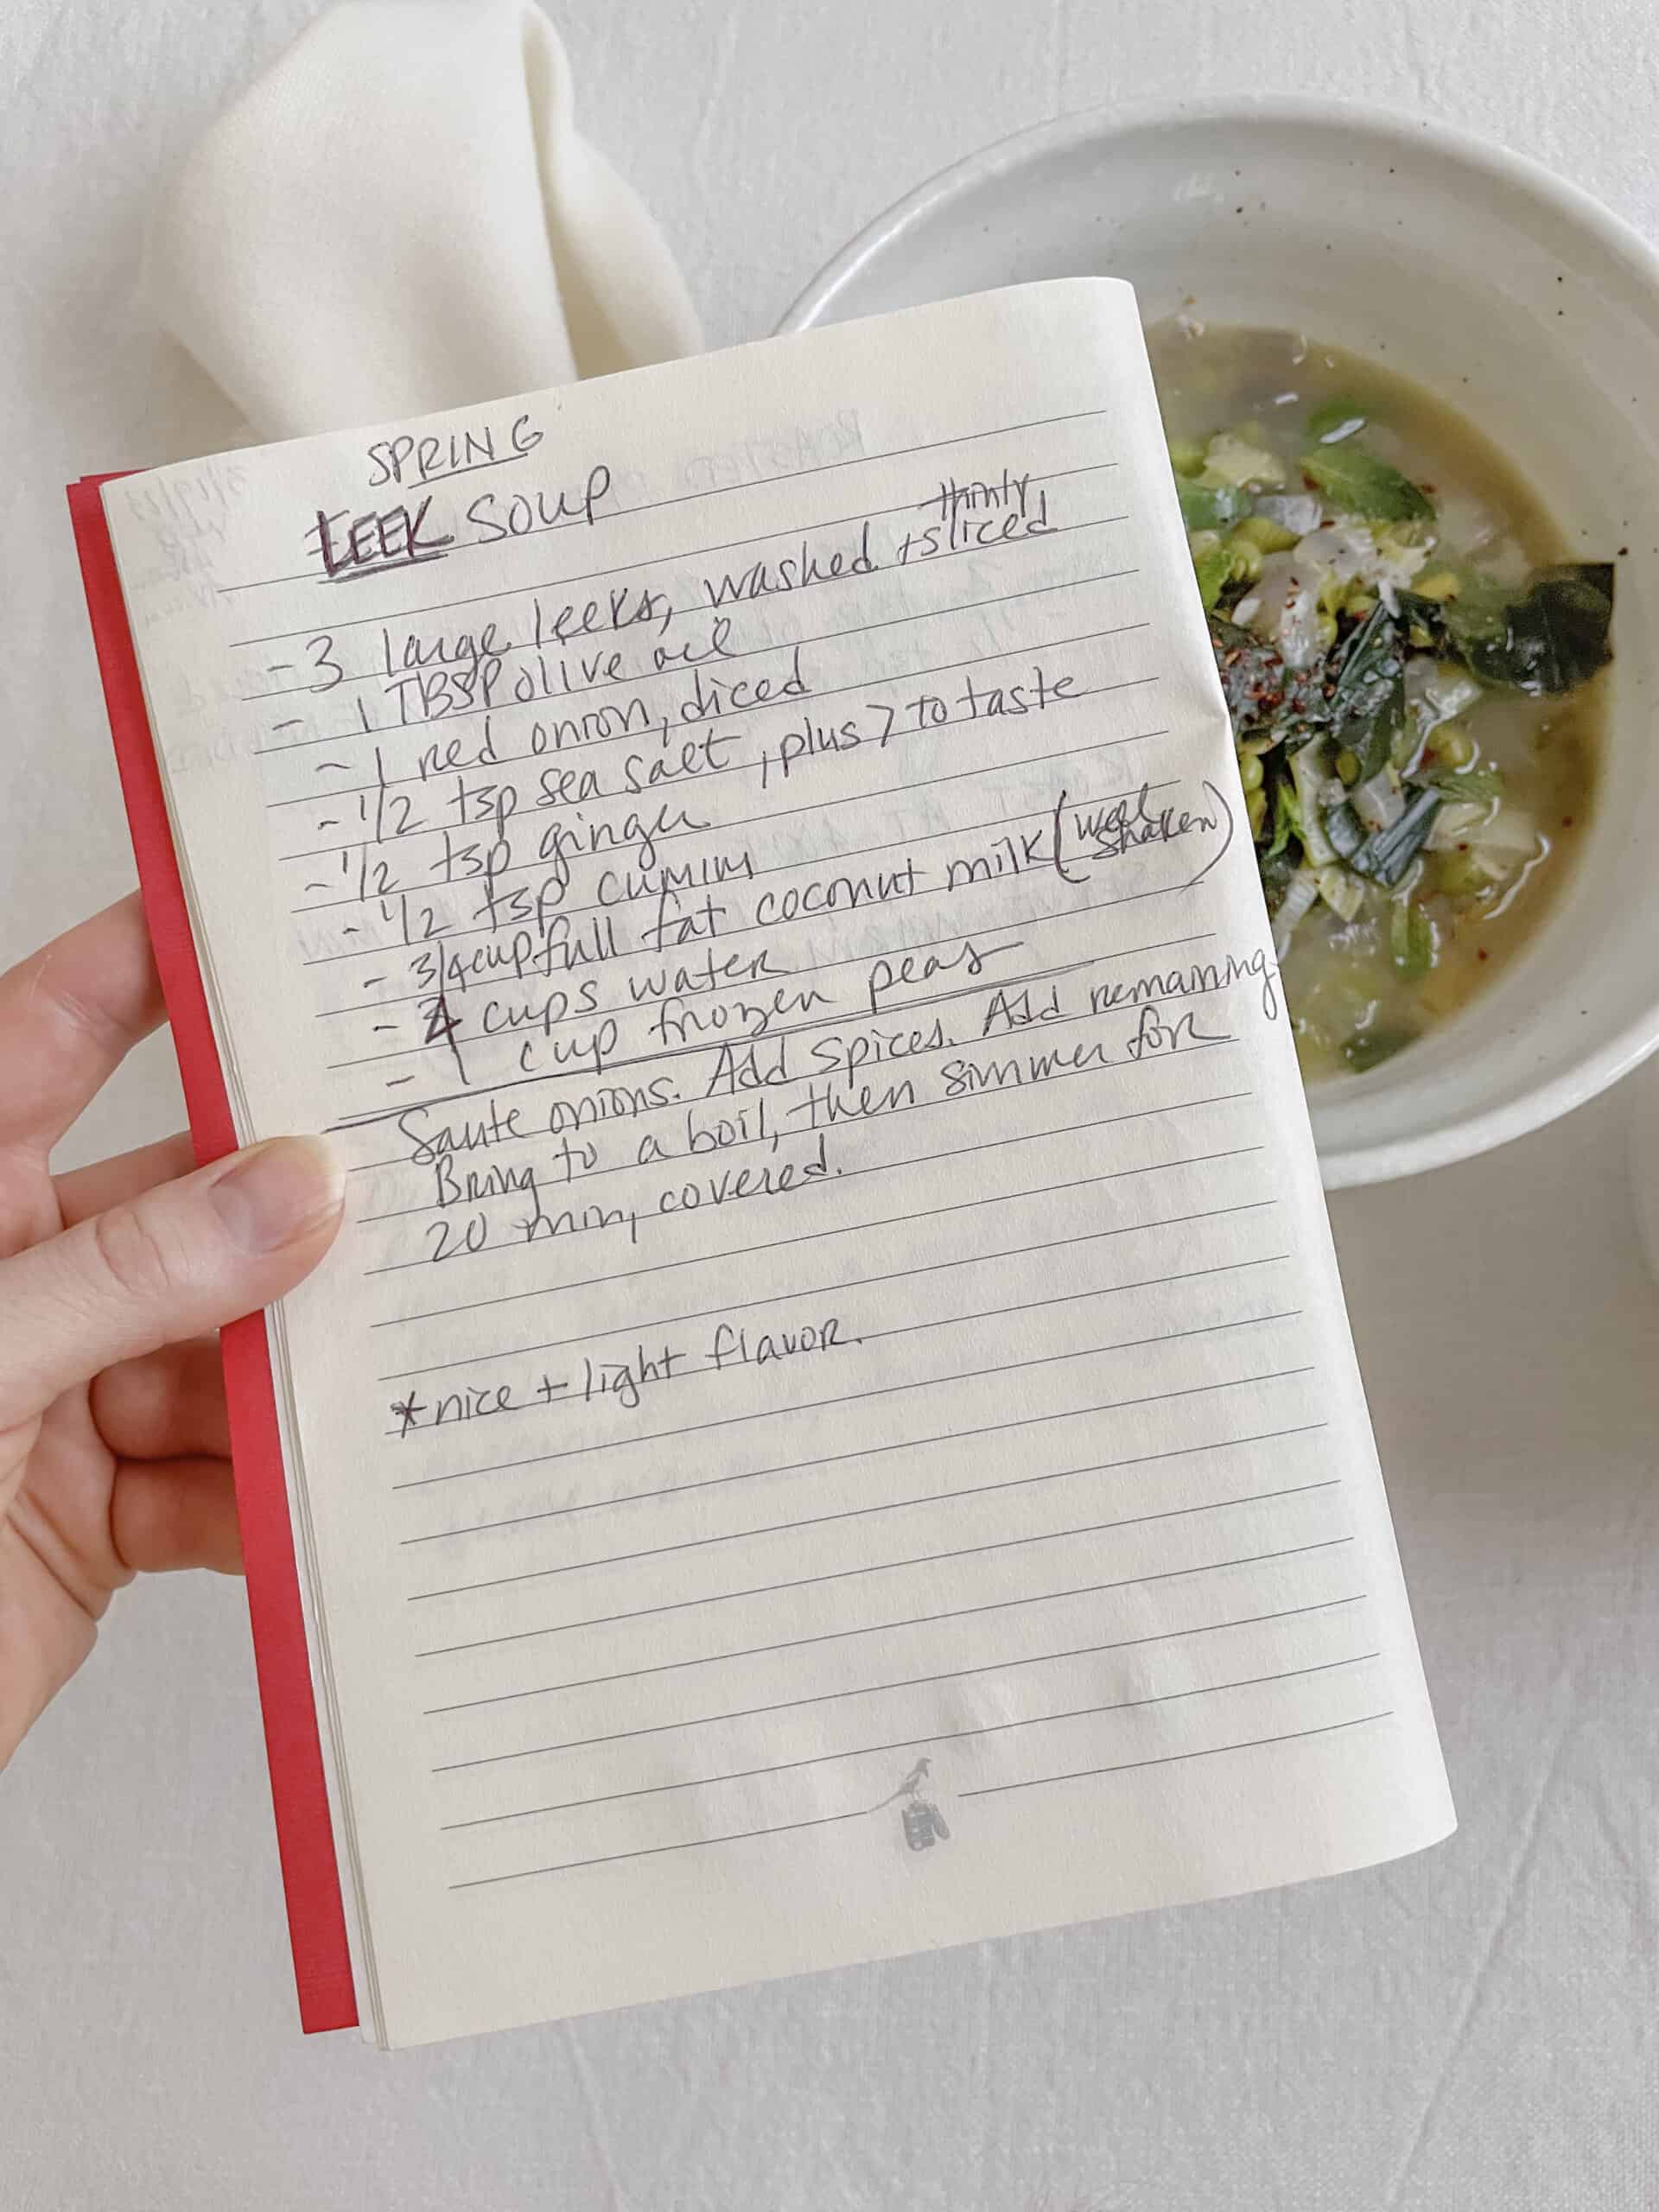 SPRING
LEEK SOUP
thinly
- 3 large leeks, washed + sliced
- 1 TBSP olive oil
- 1 red onion, diced
- 1/2 tsp sea salt, plus > to taste
- 1/2 tsp ginger
- 1/2 tsp cumin
- 3/4 cup full fat coconut milk (well shaken)
- 4 cups water
- 1 cup frozen peas
Saute onions. Add spices. Add remaining.
Bring to a boil, then simmer for
20 min, covered.
* nice + light flavor.